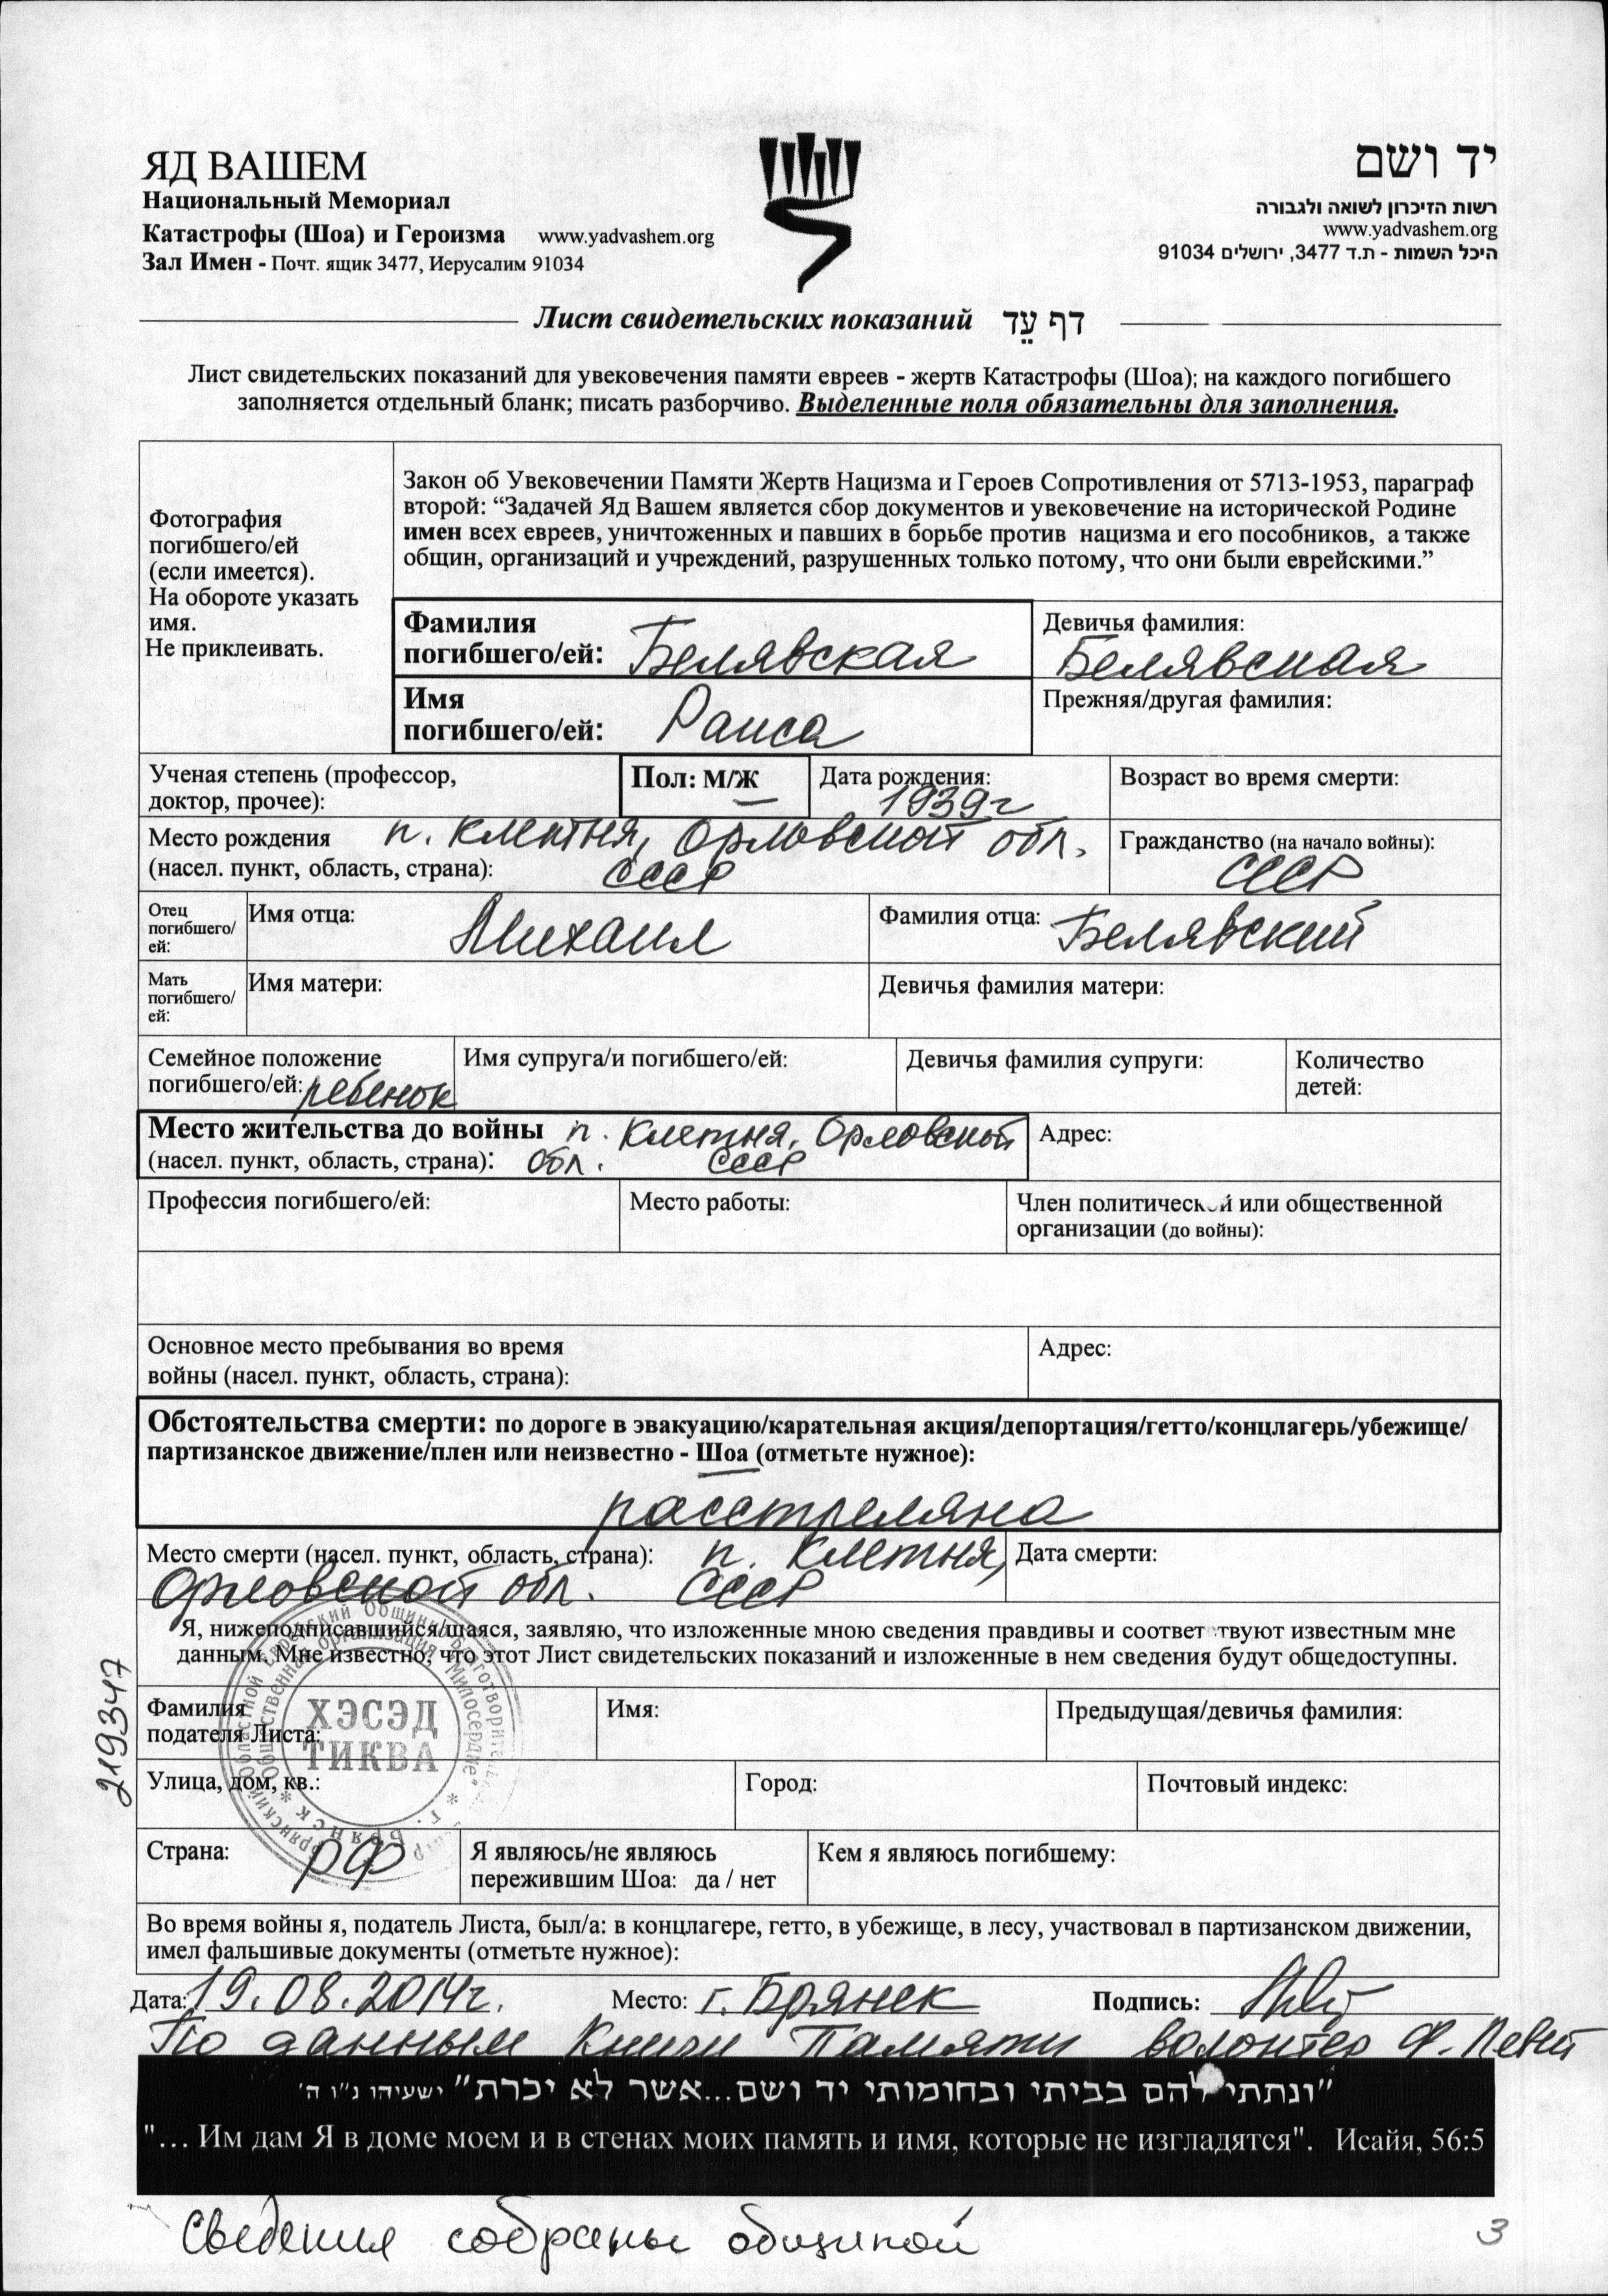 ЯД ВАШЕМ
Национальный Мемориал
Катастрофы (Шоа) и Героизма www.yadvashem.org
Зал Имен - Почт. ящик 3477, Иерусалим 91034
יד ושם
רשות הזיכרון לשואה ולגבורה
www.yadvashem.org
היכל השמות - ת.ד 3477, ירושלים 91034
Лист свидетельских показаний דף עֵד
Лист свидетельских показаний для увековечения памяти евреев - жертв Катастрофы (Шоа); на каждого погибшего
заполняется отдельный бланк; писать разборчиво. Выделенные поля обязательны для заполнения.
Фотография
погибшего/ей
(если имеется).
На обороте указать
имя.
Не приклеивать.
Закон об Увековечении Памяти Жертв Нацизма и Героев Сопротивления от 5713-1953, параграф
второй: “Задачей Яд Вашем является сбор документов и увековечение на исторической Родине
имен всех евреев, уничтоженных и павших в борьбе против нацизма и его пособников, а также
общин, организаций и учреждений, разрушенных только потому, что они были еврейскими.”
Фамилия
погибшего/ей: Белявская
Девичья фамилия:
Белявская
Имя
погибшего/ей: Раиса
Прежняя/другая фамилия:
Ученая степень (профессор,
доктор, прочее):
Пол: М/Ж
Дата рождения:
1939г
Возраст во время смерти:
Место рождения п. Клетня, Орловской обл.
(насел. пункт, область, страна): СССР
Гражданство (на начало войны):
СССР
Отец
погибшего/
ей:
Имя отца: Михаил
Фамилия отца: Белявский
Мать
погибшего/
ей:
Имя матери:
Девичья фамилия матери:
Семейное положение
погибшего/ей: ребенок
Имя супруга/и погибшего/ей:
Девичья фамилия супруги:
Количество
детей:
Место жительства до войны п. Клетня, Орловской
(насел. пункт, область, страна): обл. СССР
Адрес:
Профессия погибшего/ей:
Место работы:
Член политической или общественной
организации (до войны):
Основное место пребывания во время
войны (насел. пункт, область, страна):
Адрес:
Обстоятельства смерти: по дороге в эвакуацию/карательная акция/депортация/гетто/концлагерь/убежище/
партизанское движение/плен или неизвестно - Шоа (отметьте нужное):
расстреляна
Место смерти (насел. пункт, область, страна): п. Клетня,
Орловской обл. СССР
Дата смерти:
Я, нижеподписавшийся/шаяся, заявляю, что изложенные мною сведения правдивы и соответствуют известным мне
данным. Мне известно, что этот Лист свидетельских показаний и изложенные в нем сведения будут общедоступны.
219347
Брянский Областной Еврейский Общинный Благотворительный
Общественная организация "Милосердие"
ХЭСЭД
ТИКВА
* г. БРЯНСК *
Фамилия
подателя Листа:
Имя:
Предыдущая/девичья фамилия:
Улица, дом, кв.:
Город:
Почтовый индекс:
Страна: РФ
Я являюсь/не являюсь
пережившим Шоа: да / нет
Кем я являюсь погибшему:
Во время войны я, податель Листа, был/а: в концлагере, гетто, в убежище, в лесу, участвовал в партизанском движении,
имел фальшивые документы (отметьте нужное):
Дата: 19.08.2014г. Место: г. Брянск Подпись:
По данным Книги Памяти волонтер Ф. Левит
"ונתתי להם בביתי ובחומותי יד ושם...אשר לא יכרת" ישעיהו נ"ו ה'
"... Им дам Я в доме моем и в стенах моих память и имя, которые не изгладятся". Исайя, 56:5
Сведения собраны общиной
3